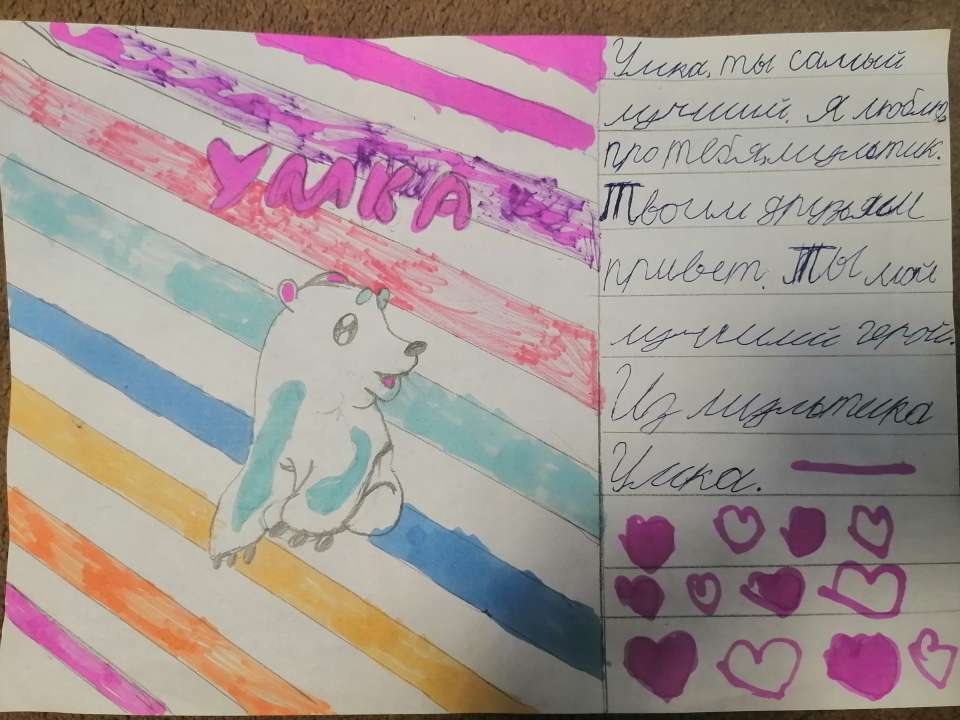 УМКА
Умка, ты самый
лучший. Я люблю
про тебя мультик.
Твоим друзьям
привет. Ты мой
лучший герой.
Из мультика
Умка.